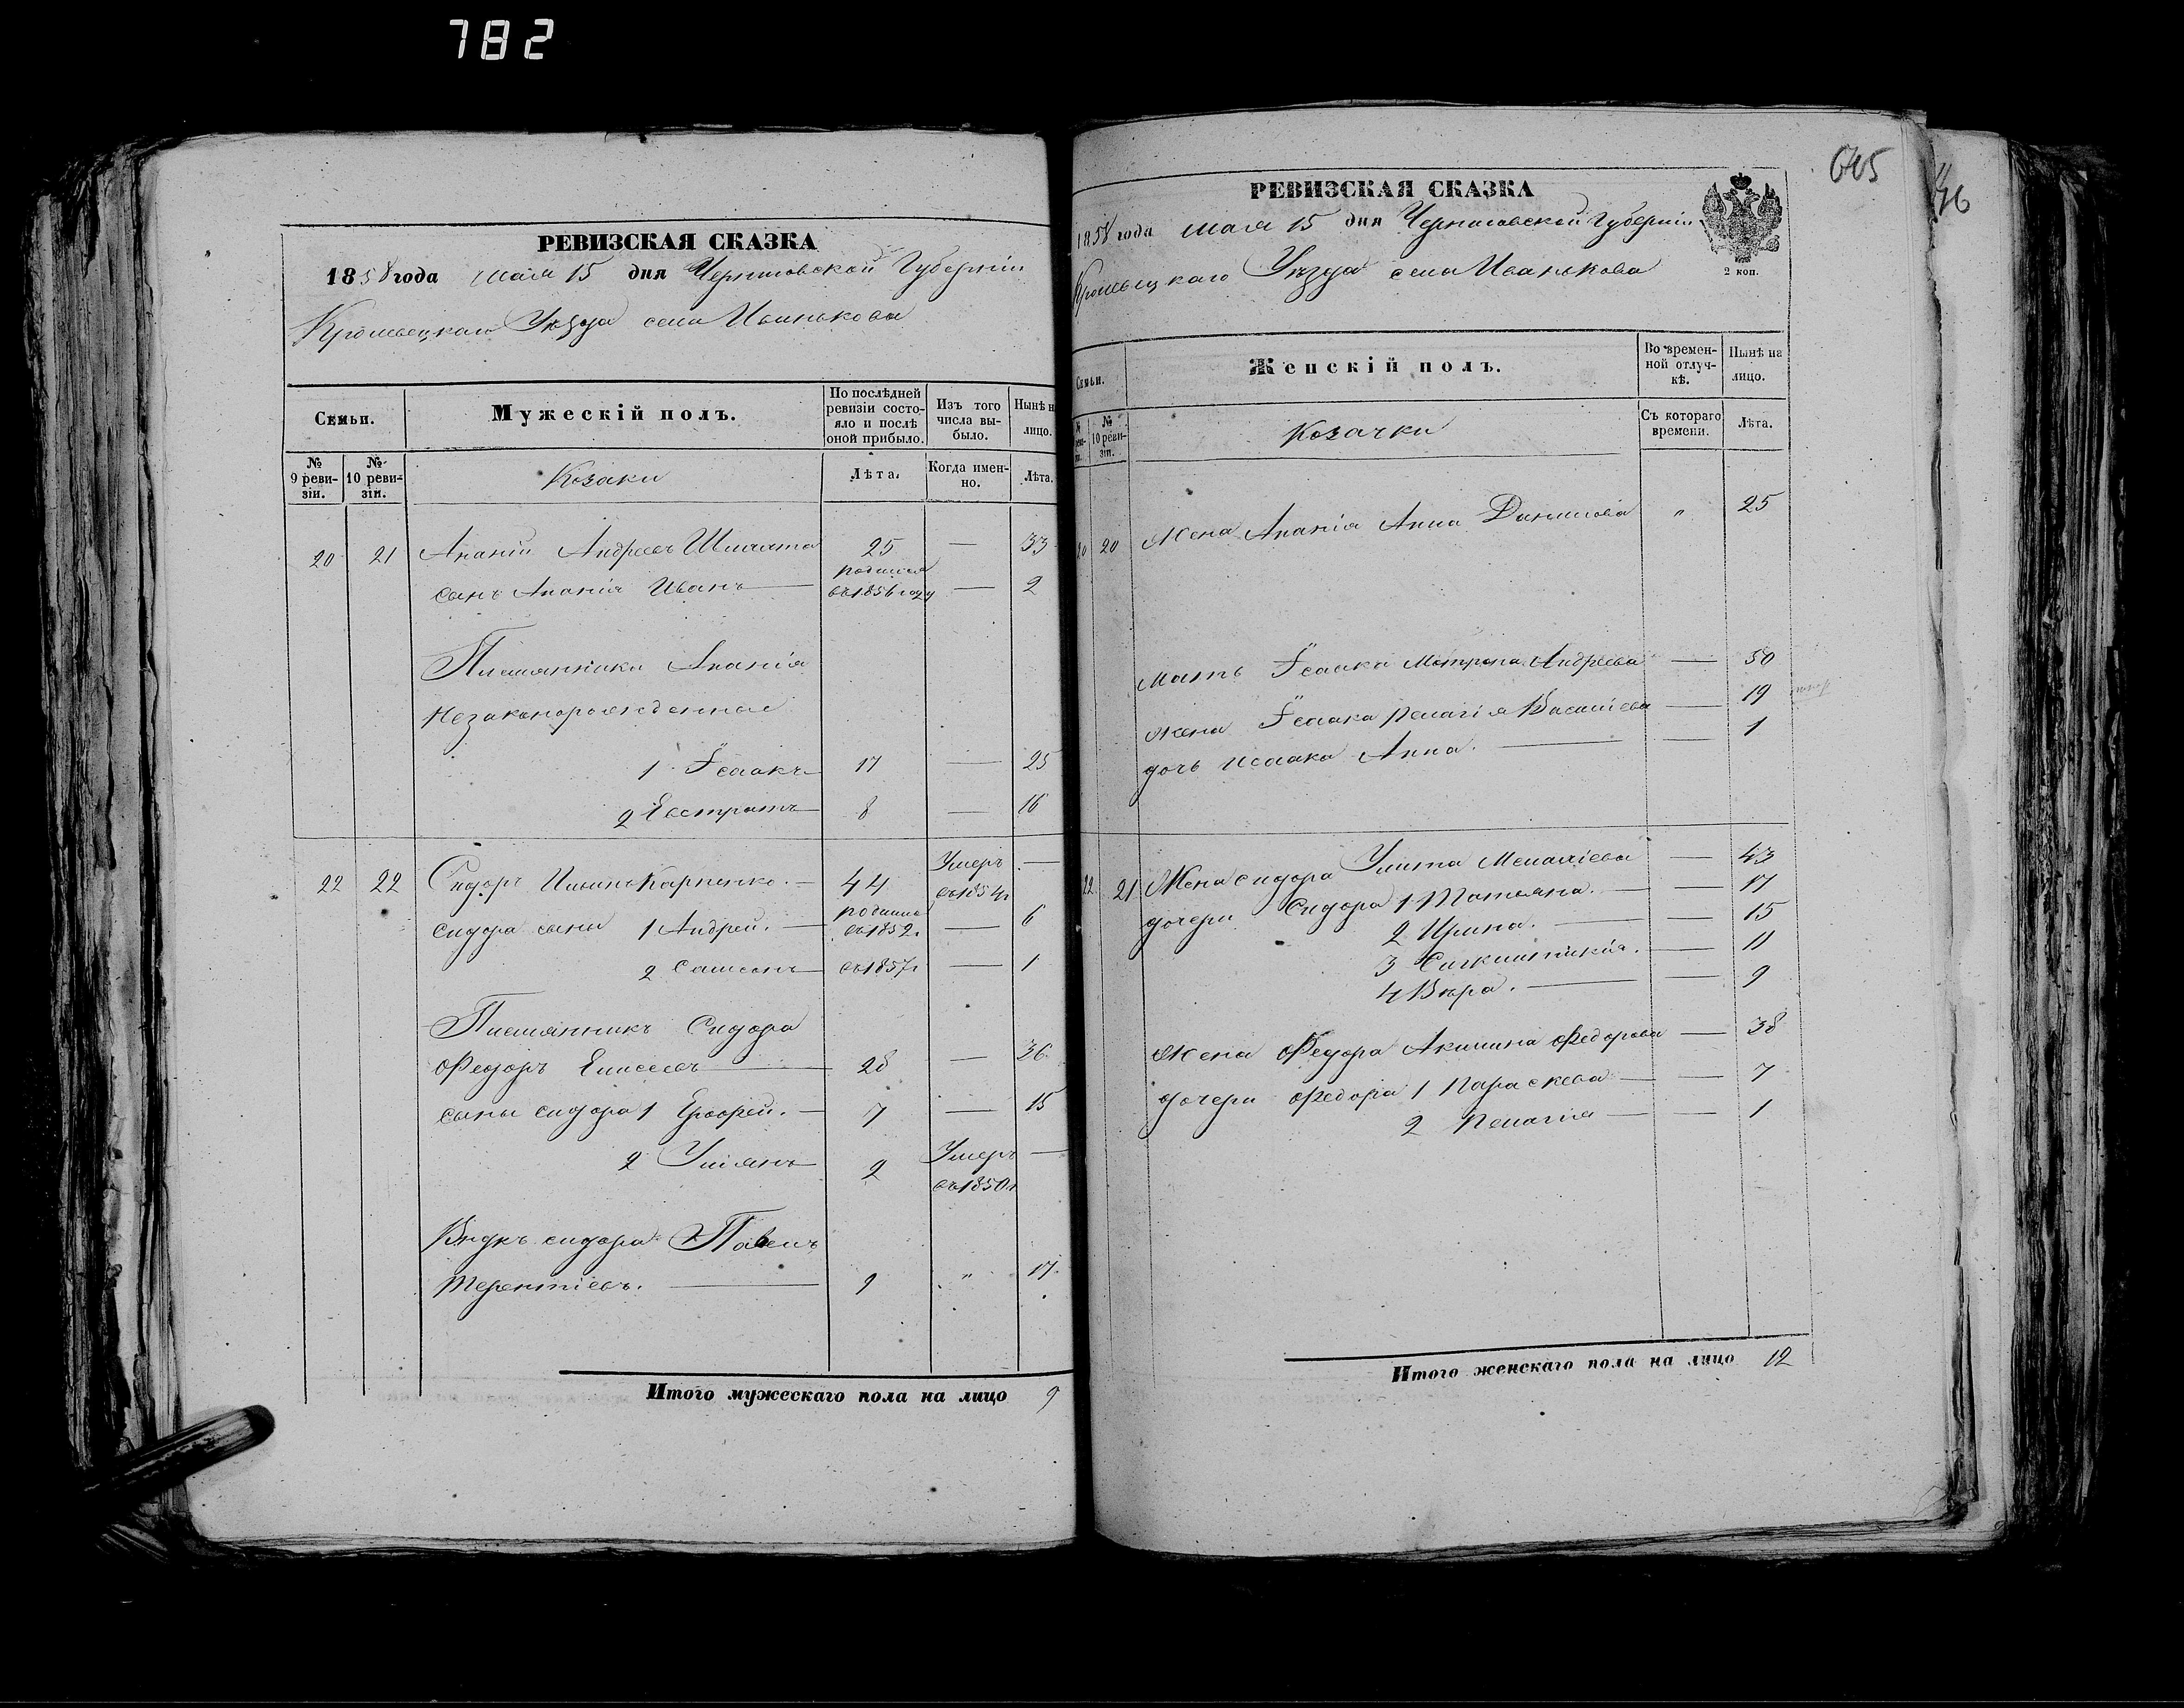 782
РЕВИЗСКАЯ СКАЗКА
1858 года мая 15 дня Черниговской Губерніи
Кролевецкаго Уѣзда села Иванькова
Семьи.
Мужескій полъ.
По послѣдней ревизіи состояло и послѣ оной прибыло.
Изъ того числа выбыло.
Нынѣ н лицо.
№ 9 ревизіи.
№ 10 ревизіи.
Козаки
Лѣта.
Когда именно.
Лѣта.
20 21 Ананій Андреевъ 25 — 33
сынъ Ананія Иванъ — родился въ 1856 году — 2
Племянники Ананія
Незаконорожденные
1 Ісаакъ — 17 — 25
2 Евстратъ — 8 — 16
22 22 Сидоръ Ильинъ Карпенко. — 44 Умеръ въ 1854 г —
Сидора сыны 1 Андрей. — родился въ 1852 г — 6
2 Самсонъ — въ 1857 г — 1
Племянникъ Сидора
Федоръ Елисеевъ — 28 — 36
сыны сидора 1 — 7 — 15
2 Уліянъ — 2 Умеръ въ 1850 г —
Внукъ сидора Павелъ
Терентіевъ. — 9 " 17
Итого мужескаго пола на лицо 9
645
46
РЕВИЗСКАЯ СКАЗКА
1858 года мая 15 дня Черниговской Губерніи
2 коп.
Кролевецкаго Уѣзда села Иванькова
Семьи.
Женскій полъ.
Во временной отлучкѣ.
Нынѣ на лицо.
№ 10 ревизіи.
Козачки
Съ котораго времени.
Лѣта.
20 20 Жена Ананія Анна Данилова " 25
Мать Ісаака Матрона Андреева — 50
жена Ісаака Пелагія Василіева — 19
дочь Исаака Анна. — — 1
22 21 Жена сидора Улита — 43
дочери Сидора 1 Татьяна. — — 17
2 Ирина. — — 15
3 — 11
4 Вѣра. — — 9
Жена Федора Акилина Федорова — 38
дочери Федора 1 Параскева — — 7
2 Пелагія — — 1
Итого женскаго пола на лицо 12